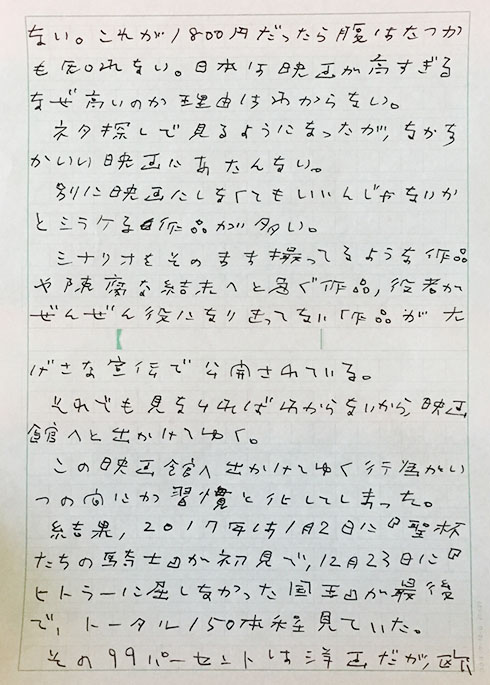 ない。これが1800円だったら腹はたつか
も知れない。日本は映画が高すぎる
なぜ高いのか理由はわからない。
ネタ探しで見るようになったが、なかな
かいい映画にあたんない。
別に映画にしなくてもいいんじゃないか
とシラケる作品が多い。
シナリオをそのまま撮ってるような作品
や陳腐な結末へと急ぐ作品、役者が
ぜんぜん役になり切ってない作品が大
げさな宣伝で公開されている。
それでも見なければわからないから、映画
館へと出かけてゆく。
この映画館へ出かけてゆく行為がい
つの間にか習慣と化してしまった。
結果、2017年は1月2日に『聖杯
たちの騎士』が初見で、12月23日に『
ヒトラーに屈しなかった国王』が最後
で、トータル150本程見ていた。
その99パーセントは洋画だが、